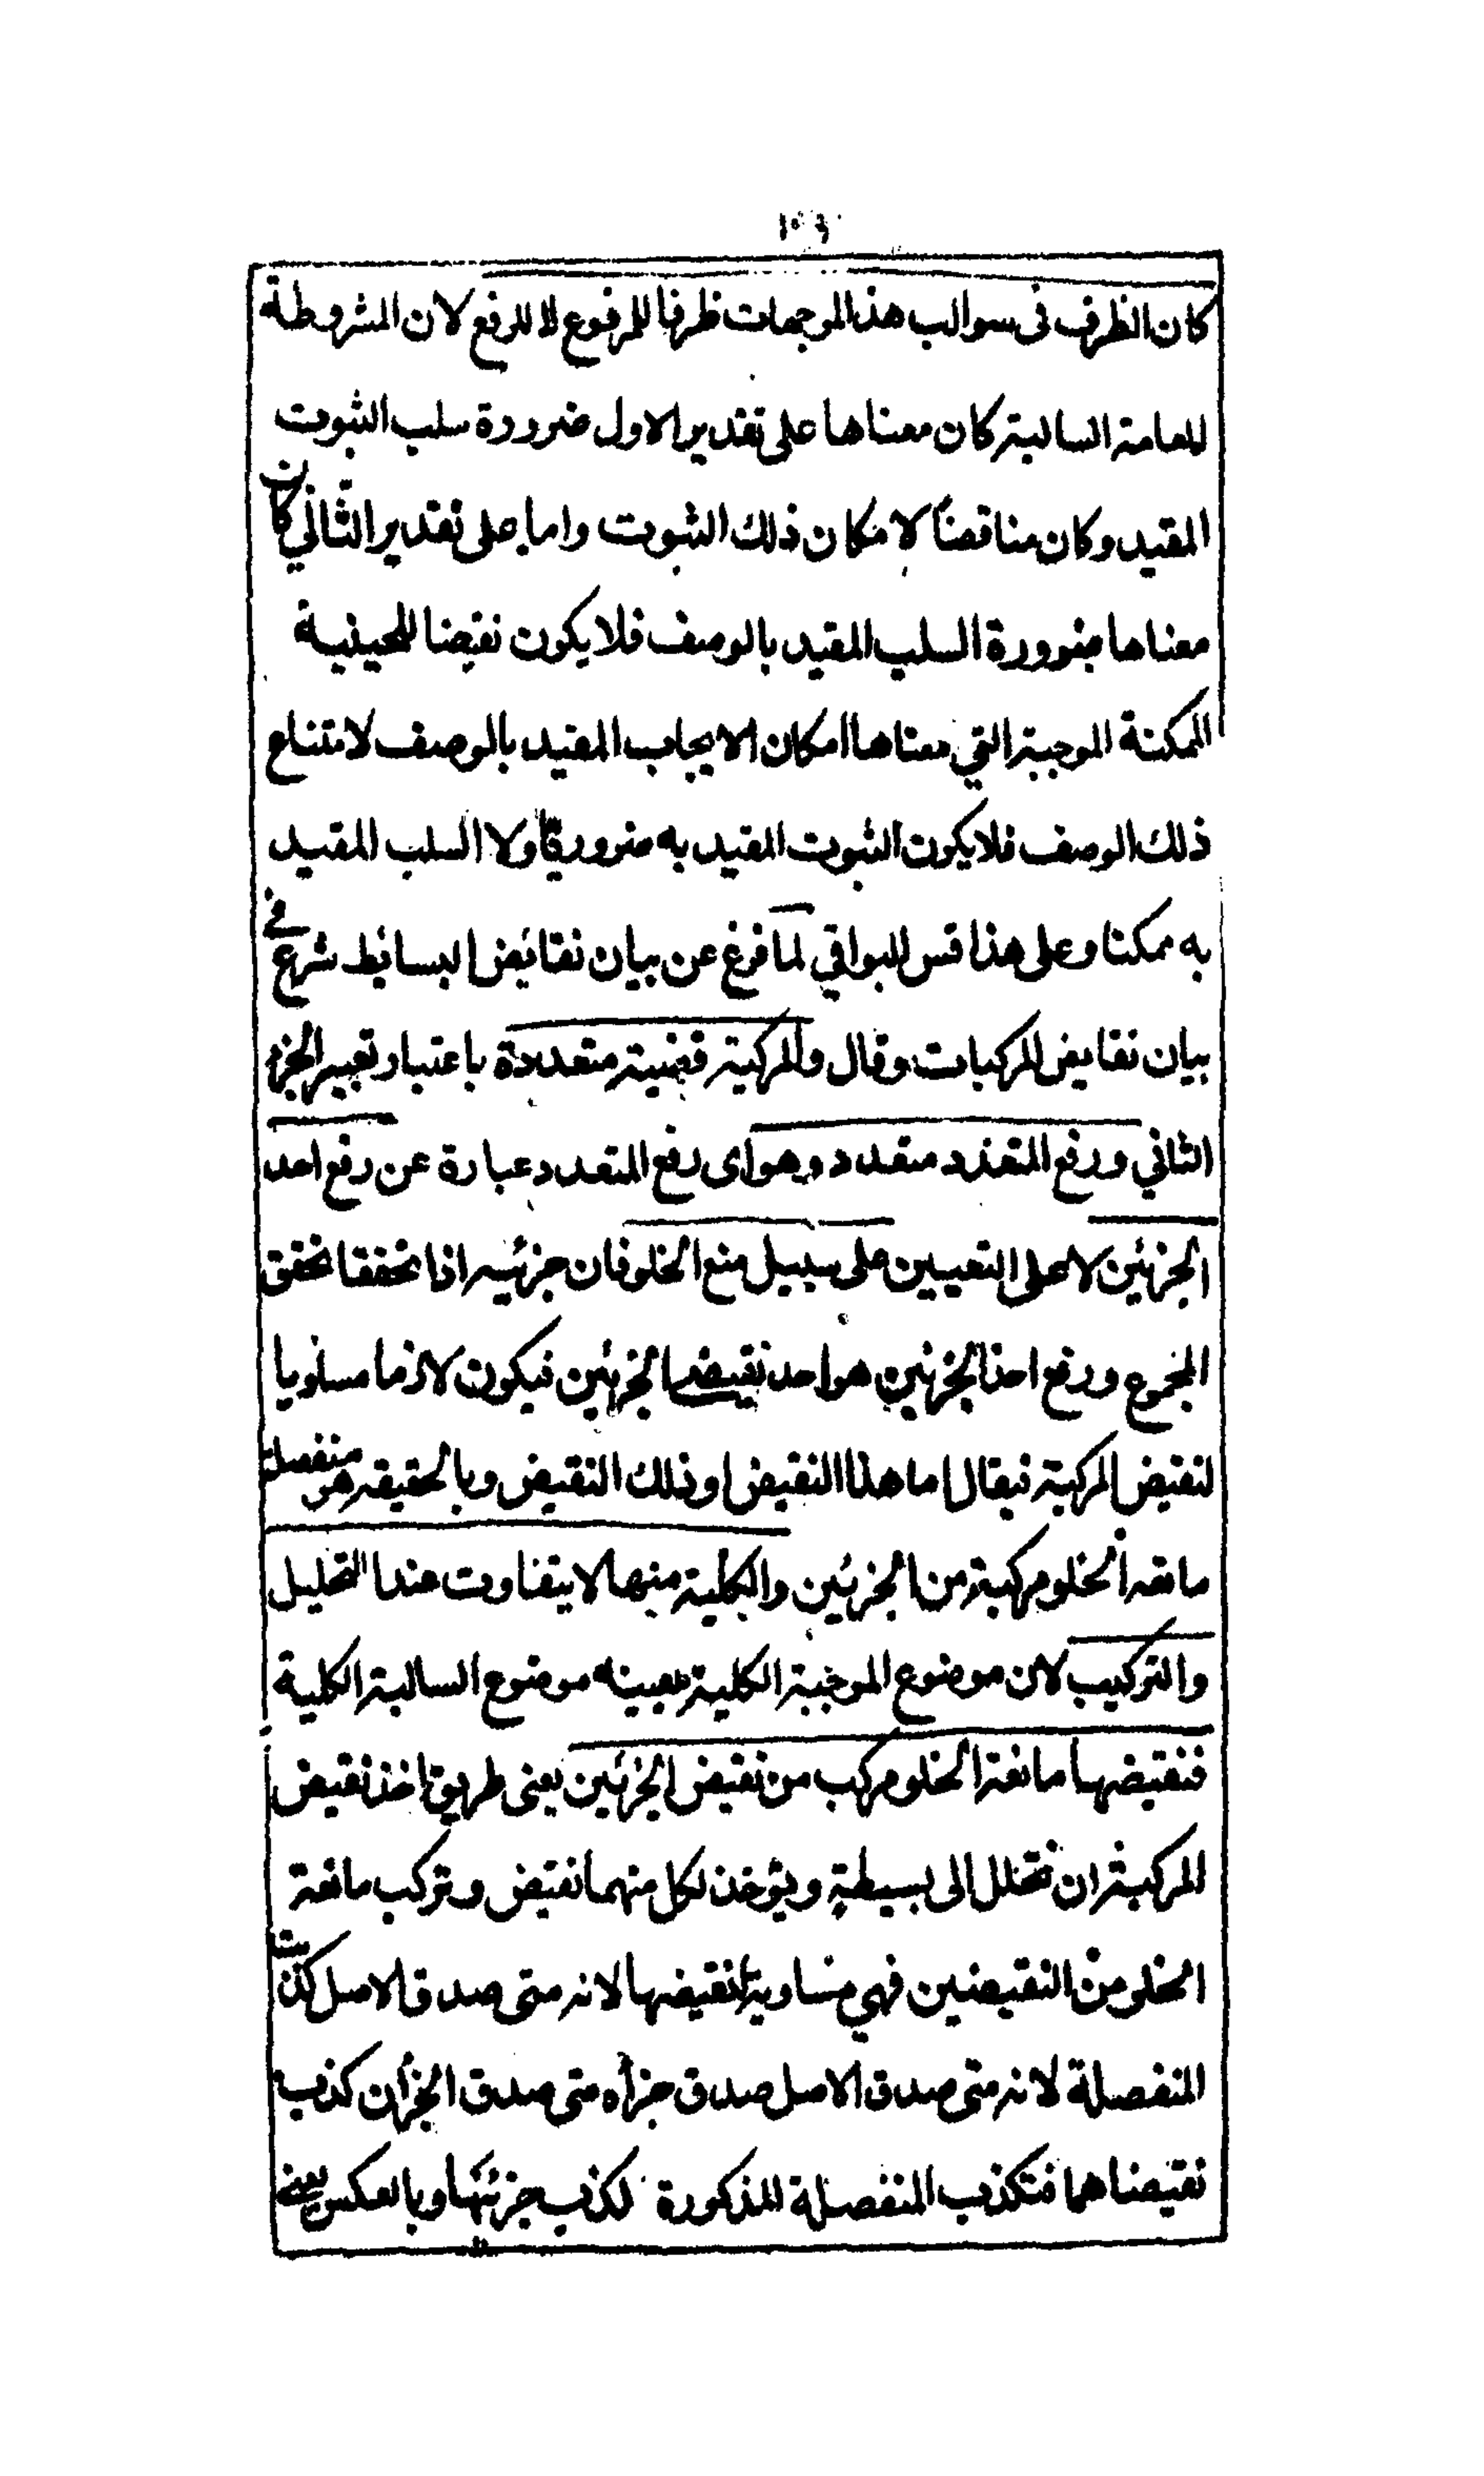 ١٠٦
كان الظرف فى سوالب هذا الموجهات ظرفا للمرفوع لا للرفع لان المشروطة
العامة السالبة كان معناها على تقدير الاول ضرورة سلب الثبوت
المقيد وكان مناقضا لامكان ذلك الثبوت واما على تقدير الثاني كان
معناها ضرورة السلب المقيد بالوصف فلا يكون نقيضا للحينية
الممكنة الموجبة التي معناها امكان الايجاب المقيد بالوصف لامتناع
ذلك الوصف فلا يكون الثبوت المقيد به ضروريا ولا السلب المقيد
به ممكنا وعلى هذا قس البواقي لما فرغ عن بيان نقائض البسائط شرع في
بيان نقايض المركبات وقال والمركبة قضية متعددة باعتبار تعبير الجزء
الثاني ورفع المتعدد متعدد وهو اى رفع المتعدد عبارة عن رفع احد
الجزئين لا على التعيين على سبيل منع الخلو فان جزئيه اذا تحققا تحقق
المجموع ورفع احد الجزئين هو احد نقيضى الجزئين فيكون لازما مساويا
لنقيض المركبة فيقال اما هذا النقيض او ذلك النقيض وبالحقيقة هو منفصلة
مانعة الخلو مركبة من الجزئين والكلية منها لا يتفاوت عند التحليل
والتركيب لان موضوع الموجبة الكلية بعينه موضوع السالبة الكلية
فنقيضها مانعة الخلو مركب من نقيض الجزئين يعنى طريق اخذ نقيض
المركبة ان تحلل الى بسيطة ويؤخذ لكل منهما نقيض وتركب مانعة
الخلو من النقيضين فهي مساوية لنقيضها لانه متى صدق الاصل كذبت
المنفصلة لانه متى صدق الاصل صدق جزأه متى صدق الجزأن كذب
نقيضاهما فتكذب المنفصلة المذكورة لكذب جزئيها وبالعكس يعنى